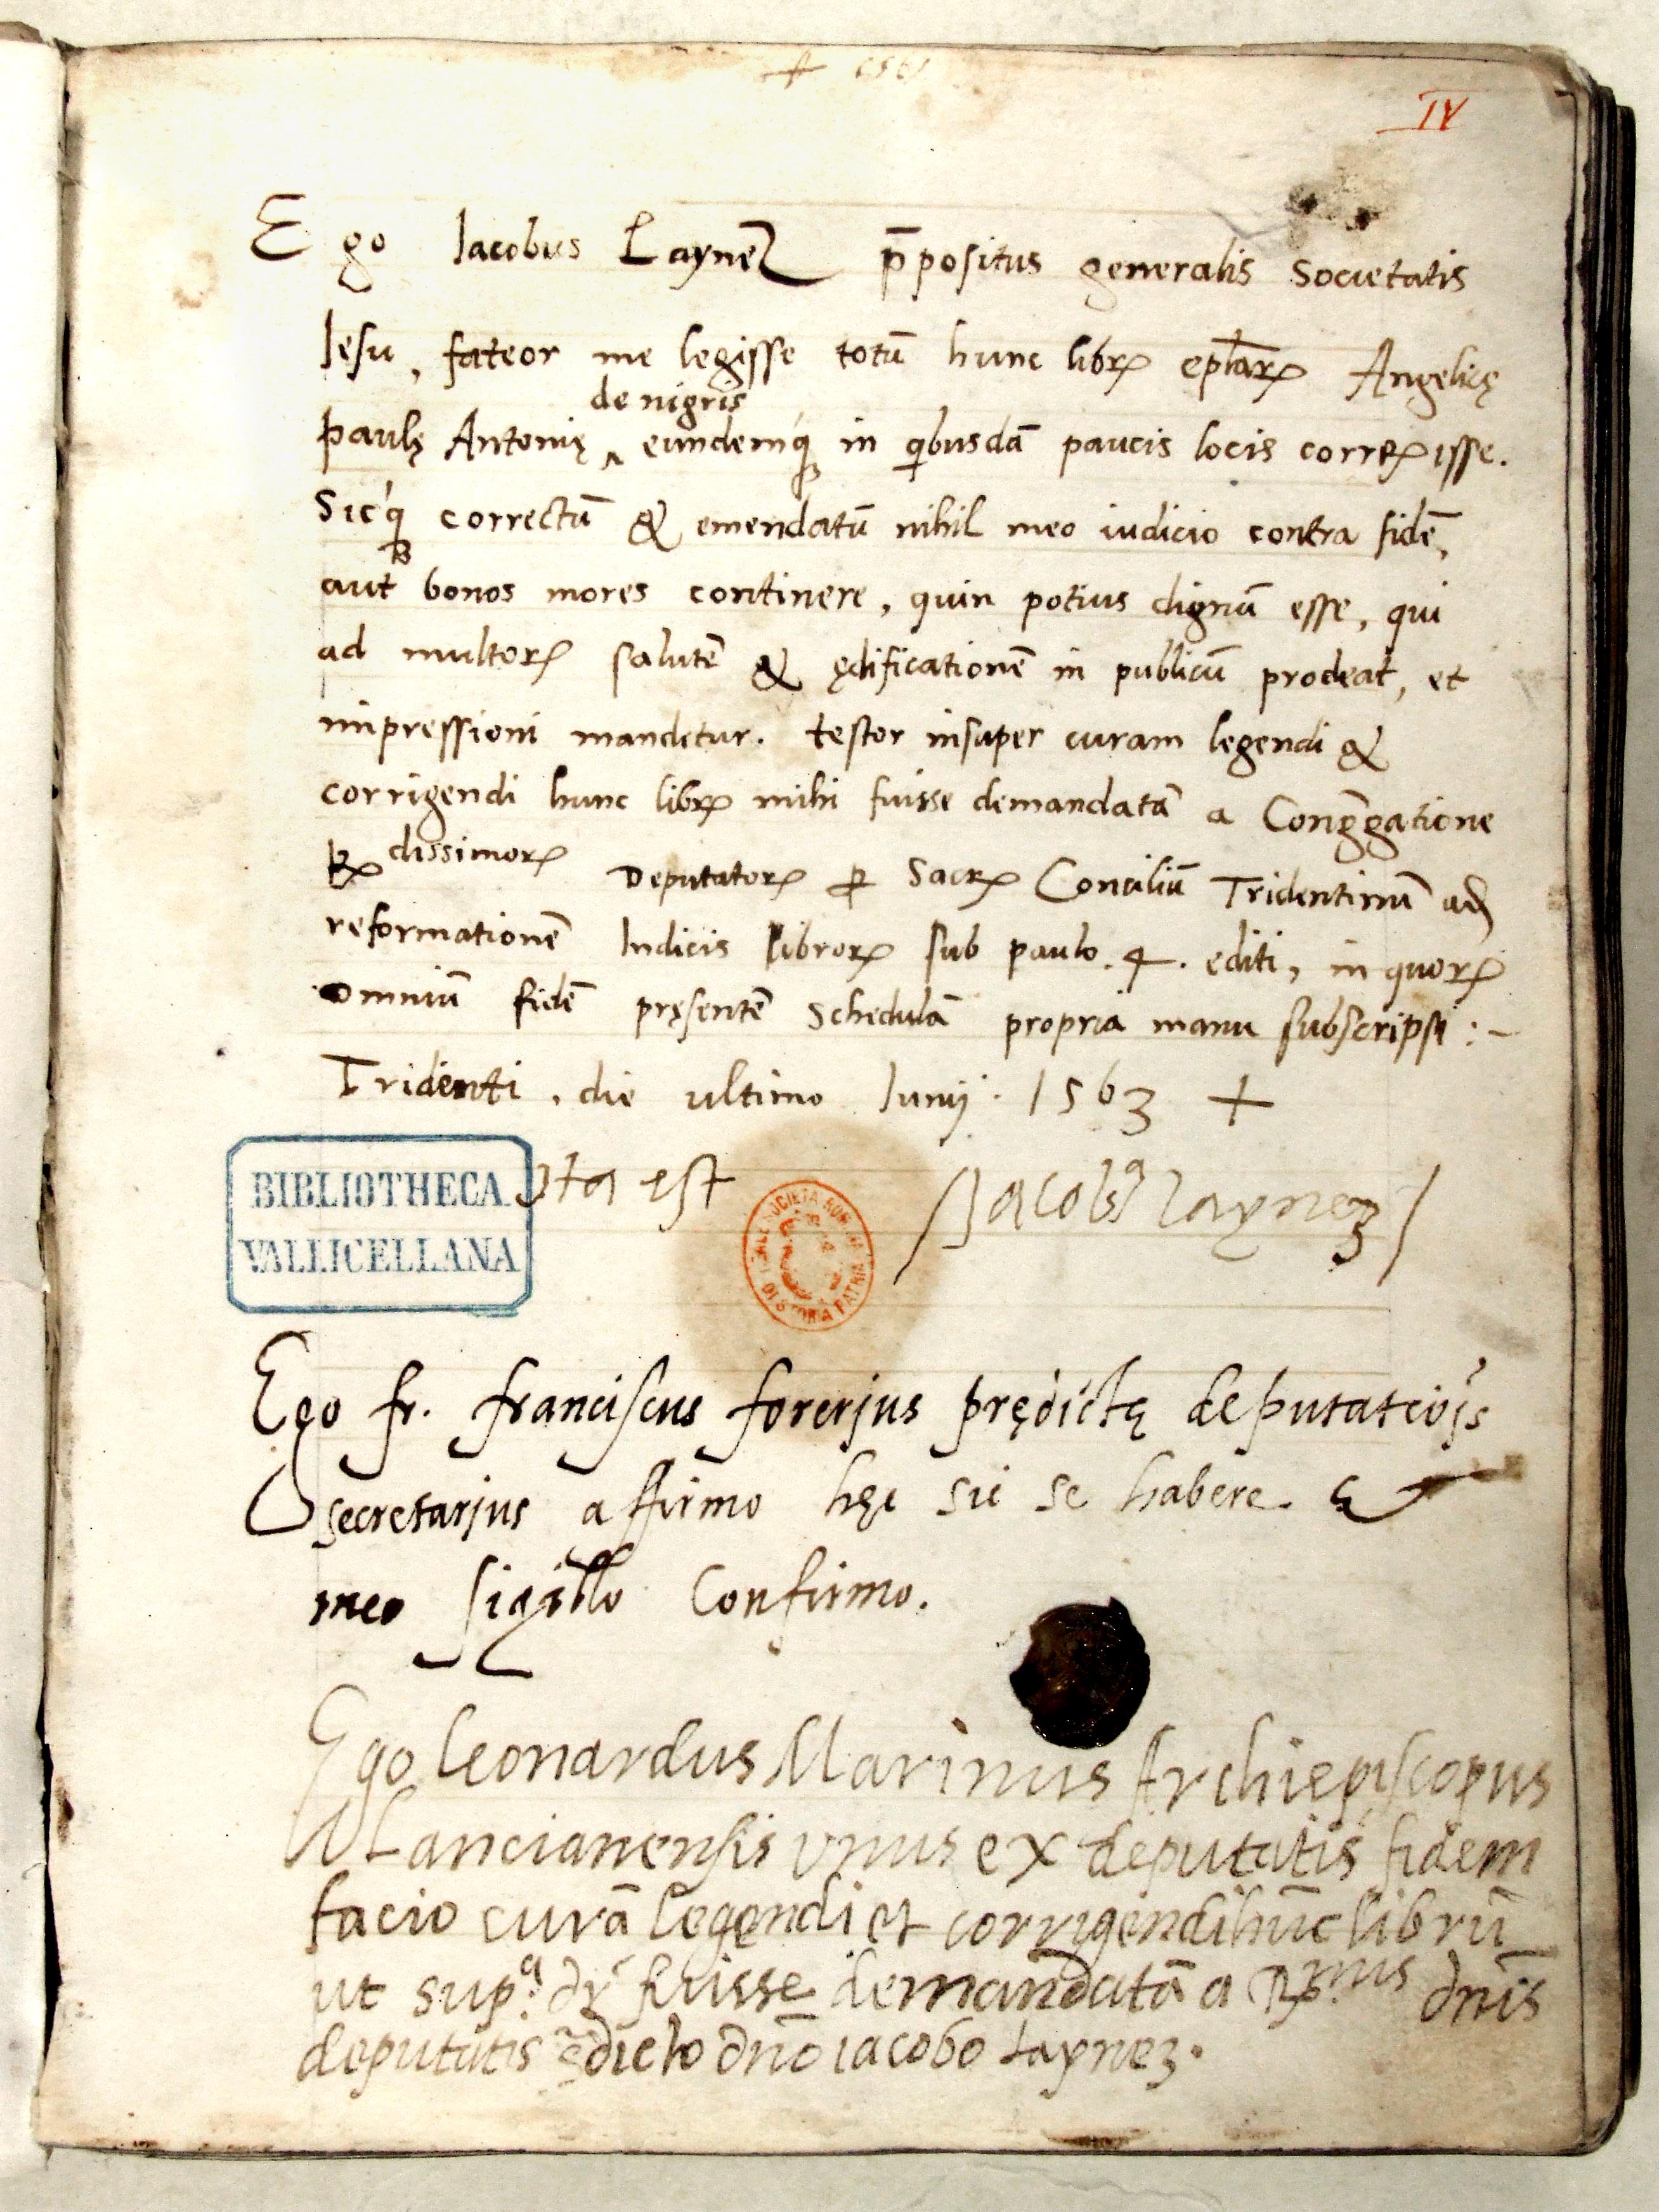 IV
Ego Iacobus Laynez p̄positus generalis Societatis
Iesu, fateor me legisse totū hunc librꝝ eplarꝝ Angelicę
de nigris
Paulę Antonię ‸ eundemq́ꝫ in qbusdā paucis locis correxisse.
Sicq́ꝫ correctū & emendatū nihil meo iudicio contra fidē,
aut bonos mores continere, quin potius dignū esse, qui
ad multorꝝ salutē & ędificationē in publicū prodeat, et
impressioni mandetur. testor insuper curam legendi &
corrigendi hunc librꝝ mihi fuisse demandatā a Congg̃atione
Rꝝdissimorꝝ Deputatorꝝ ꝑ Sacrꝝ Conciliū Tridentinū ad
reformationē Indicis librorꝝ sub paulo .4. editi, in quorꝝ
omniū fidē pręsentē Schedulā propria manu subscripsi :-
Tridenti, die ultimo Iunij. 1563 +
Ita est Jacobꝰ laynez
BIBLIOTHECA
VALLICELLANA
SOCIETÀ ROMANA DI STORIA PATRIA
Ego fr. franciscus forerius prędictę deputatiōis
secretarius affirmo hęc sic se habere. &
meo sigillo Confirmo.
Ego leonardus Marinus Archiepiscopus
Lancianensis vnus ex deputatis fidem
facio curā legendi et corrigendi hūc librū
ut supᵃ. dr̃ fuisse demandatā a Rꝝ.mis dn̄is
deputatis p̃dicto dn̄o iacobo Laynez.